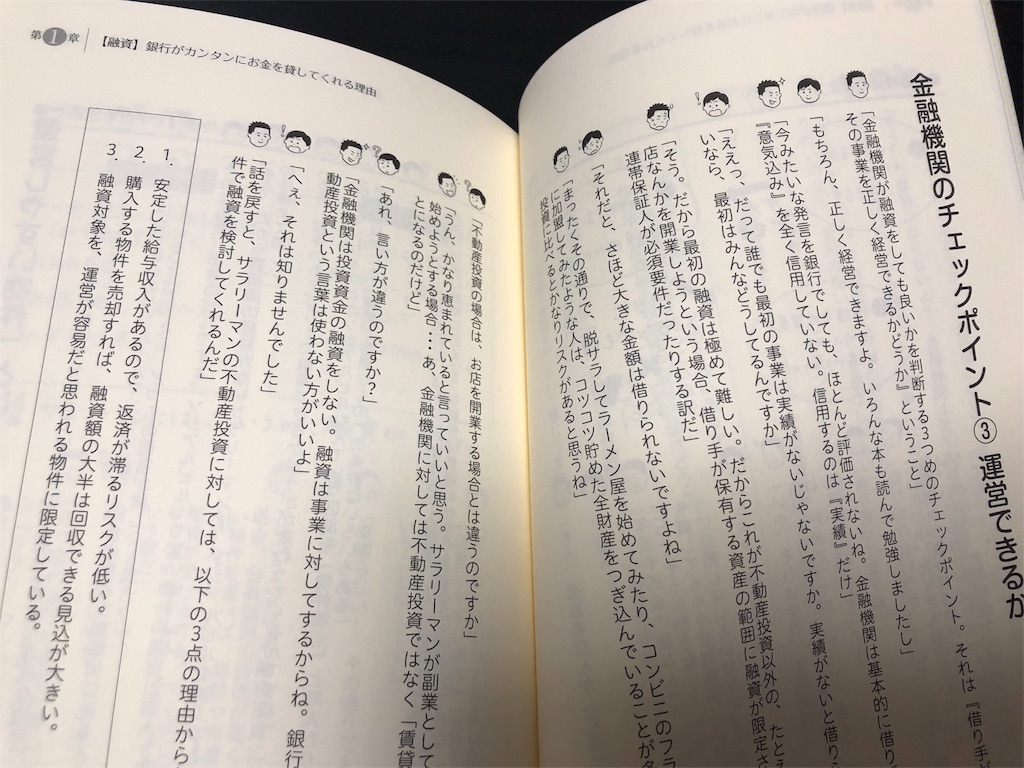 金融機関のチェックポイント③ 運営できるか
「金融機関が融資をしても良いかを判断する3つめのチェックポイント。それは『借り手が
その事業を正しく経営できるかどうか』ということ」
「もちろん、正しく経営できますよ。いろんな本も読んで勉強しましたし」
「今みたいな発言を銀行でしても、ほとんど評価されないね。金融機関は基本的に借り
『意気込み』を全く信用していない。信用するのは『実績』だけ」
「ええっ、だって誰でも最初の事業は実績がないじゃないですか。実績がないと借り
いなら、最初はみんなどうしてるんですか」
「そう。だから最初の融資は極めて難しい。だからこれが不動産投資以外の、たとえ
店なんかを開業しようという場合、借り手が保有する資産の範囲に融資が限定さ
連帯保証人が必須要件だったりする訳だ」
「それだと、さほど大きな金額は借りられないですよね」
「まったくその通りで、脱サラしてラーメン屋を始めてみたり、コンビニのフラ
に加盟してみたような人は、コツコツ貯めた全財産をつぎ込んでいることが
投資に比べるとかなりリスクがあると思うね」
第1章 【融資】銀行がカンタンにお金を貸してくれる理由
「不動産投資の場合は、お店を開業する場合とは違うのですか」
「うん、かなり恵まれていると言っていいと思う。サラリーマンが副業として
始めようとする場合・・・あ、金融機関に対しては不動産投資ではなく「賃貸
とになるのだけど」
「あれ、言い方が違うのですか?」
「金融機関は投資資金の融資をしない。融資は事業に対してするからね。銀行
動産投資という言葉は使わない方がいいよ」
「へぇ、それは知りませんでした」
「話を戻すと、サラリーマンの不動産投資に対しては、以下の3点の理由から
件で融資を検討してくれるんだ」
1. 安定した給与収入があるので、返済が滞るリスクが低い。
2. 購入する物件を売却すれば、融資額の大半は回収できる見込が大きい。
3. 融資対象を、運営が容易だと思われる物件に限定している。